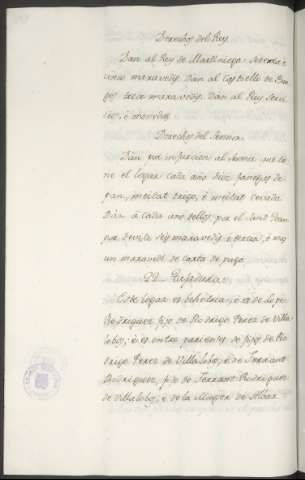 Derechos del Rey
Dan al Rey de Martiniega setenta é
cinco maravedis. Dan al Castiello de Bur
gos trece maravedis. Dan al Rey servi
cios, é monedas.
Derechos del Sennor
Dan por infurcion al Sennor que tie
ne el logar cada año diez fanegas de
pan, meitat trigo, é meitat cevada.
Dan á cada uno dellos, por el Sant Juan
por seis maravedis é tercia, é mas
un maravedi de carta de pago.
22
Este logar es behetria, é es de Lope
Rodriguez fijo de Rodrigo Perez de Villa
lobos, é es entre parientes de fijos de Ro
drigo Perez de Villalobos, é de Ferrant
Rodriguez, fijo de Ferrant Rodriguez
de Villalobos, é de la Muger de Alvar